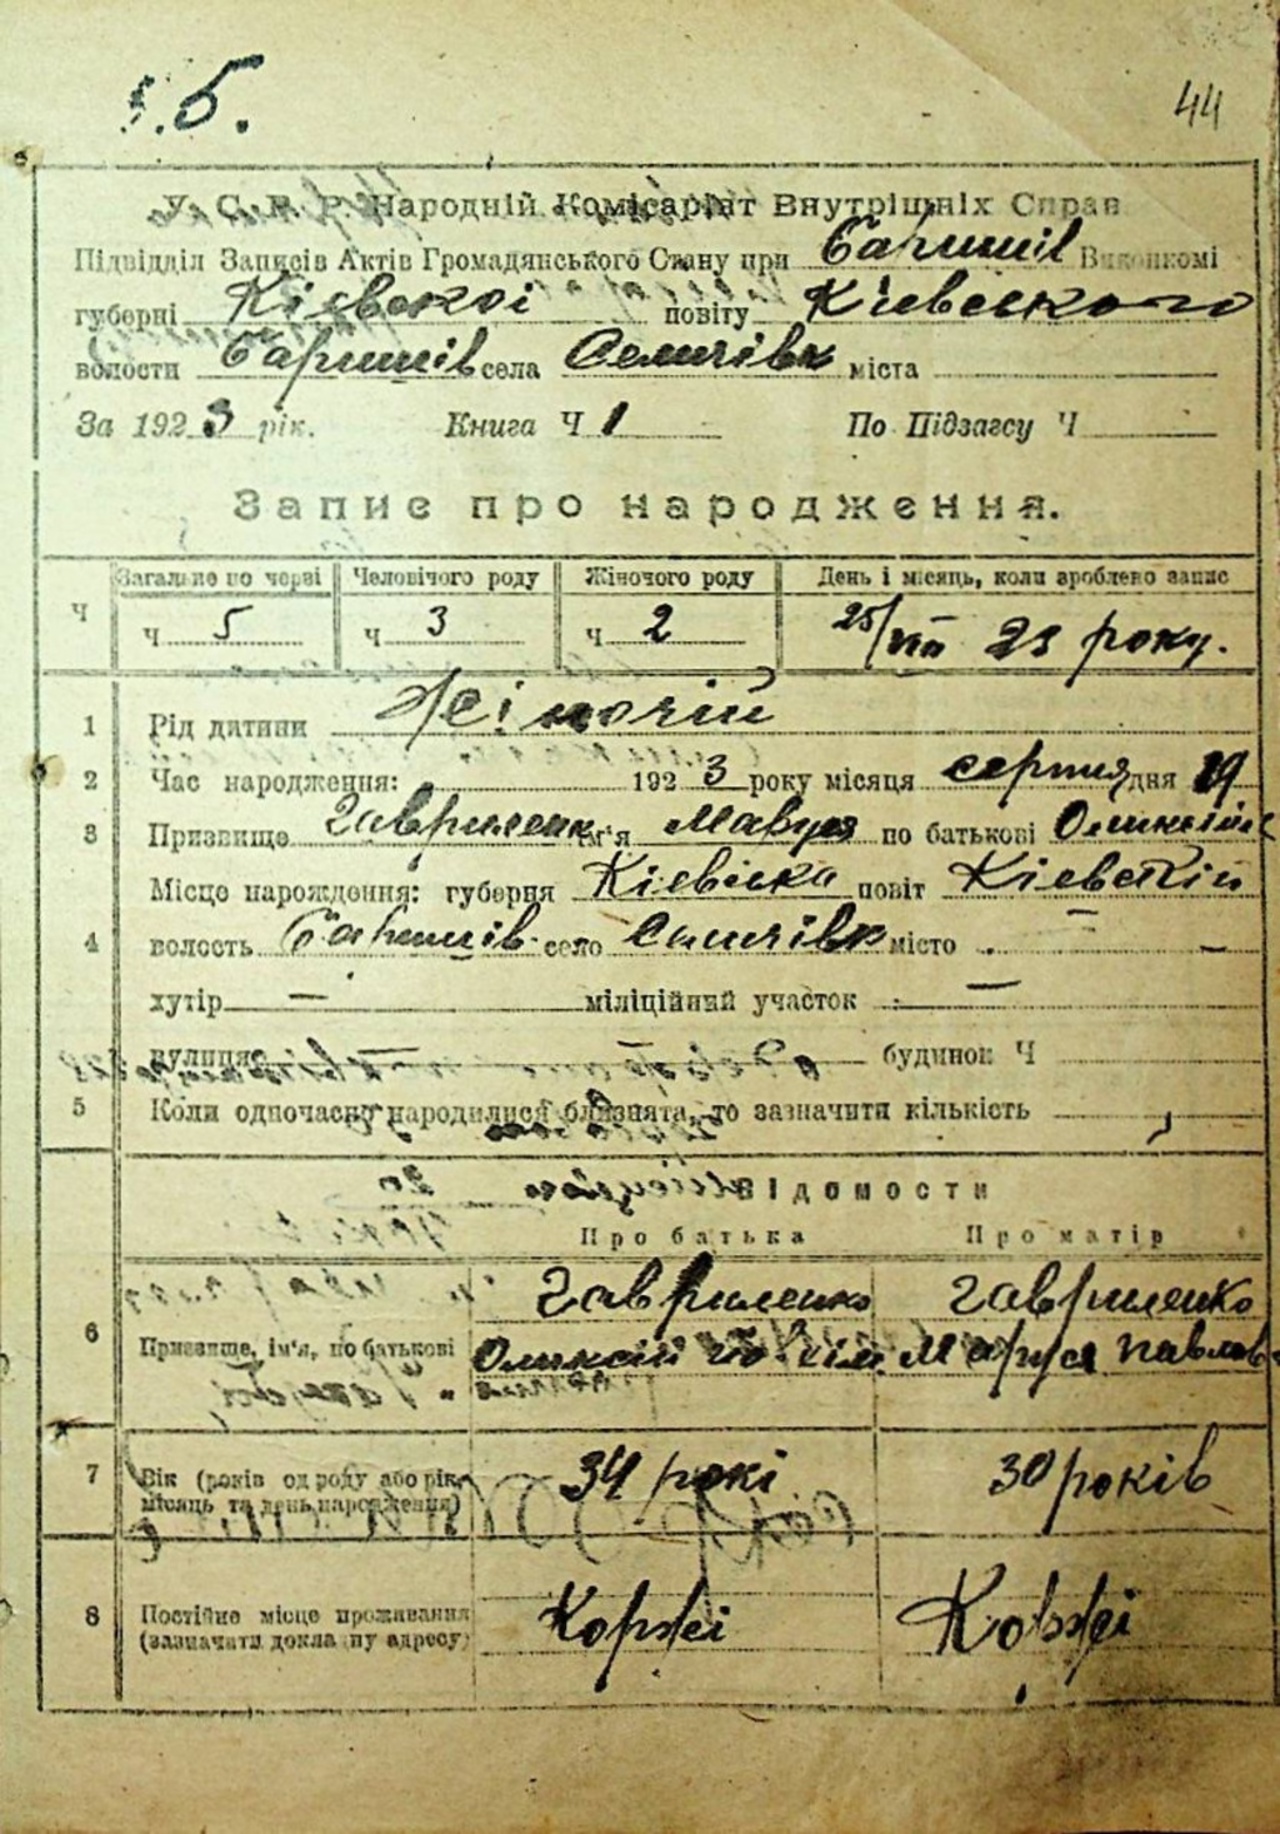 5.
44
У. С. Р. Р. Народній Комісаріят Внутрішніх Справ
Підвідділ Записів Актів Громадянського Стану при Баришів Виконкомі
губерні Кієвскоі повіту Кієвського
волости Баришів села Селичівк міста
За 1923 рік. Книга Ч 1 По Підзагсу Ч
Запис про народження.
Загальне по черзі Человічого роду Жіночого роду День і місяць, коли зроблено запис
Ч ч 5 ч 3 ч 2 25/VIII 23 року.
1 Рід дитини Жіночій
2 Час народження: 1923 року місяця серпня дня 19
3 Призвище Гавриленк ім'я Маруся по батькові Оликсійов
Місце народження: губерня Кієвська повіт Кієвский
4 волость Баришів село Селичівк місто —
хутір — міліційний участок —
вулиця — будинок Ч
5 Коли одночасну народилися близнята, то зазначити кількість
Відомости
Про батька Про матір
Гавриленко Гавриленко
6 Призвище, ім'я, по батькові Оликсій Йокім Маруся Павлов
7 Вік (років од роду або рік, 34 рокі 30 років
місяць та день народження)
8 Постійне місце проживання Коржі Коржі
(зазначити докладну адресу)